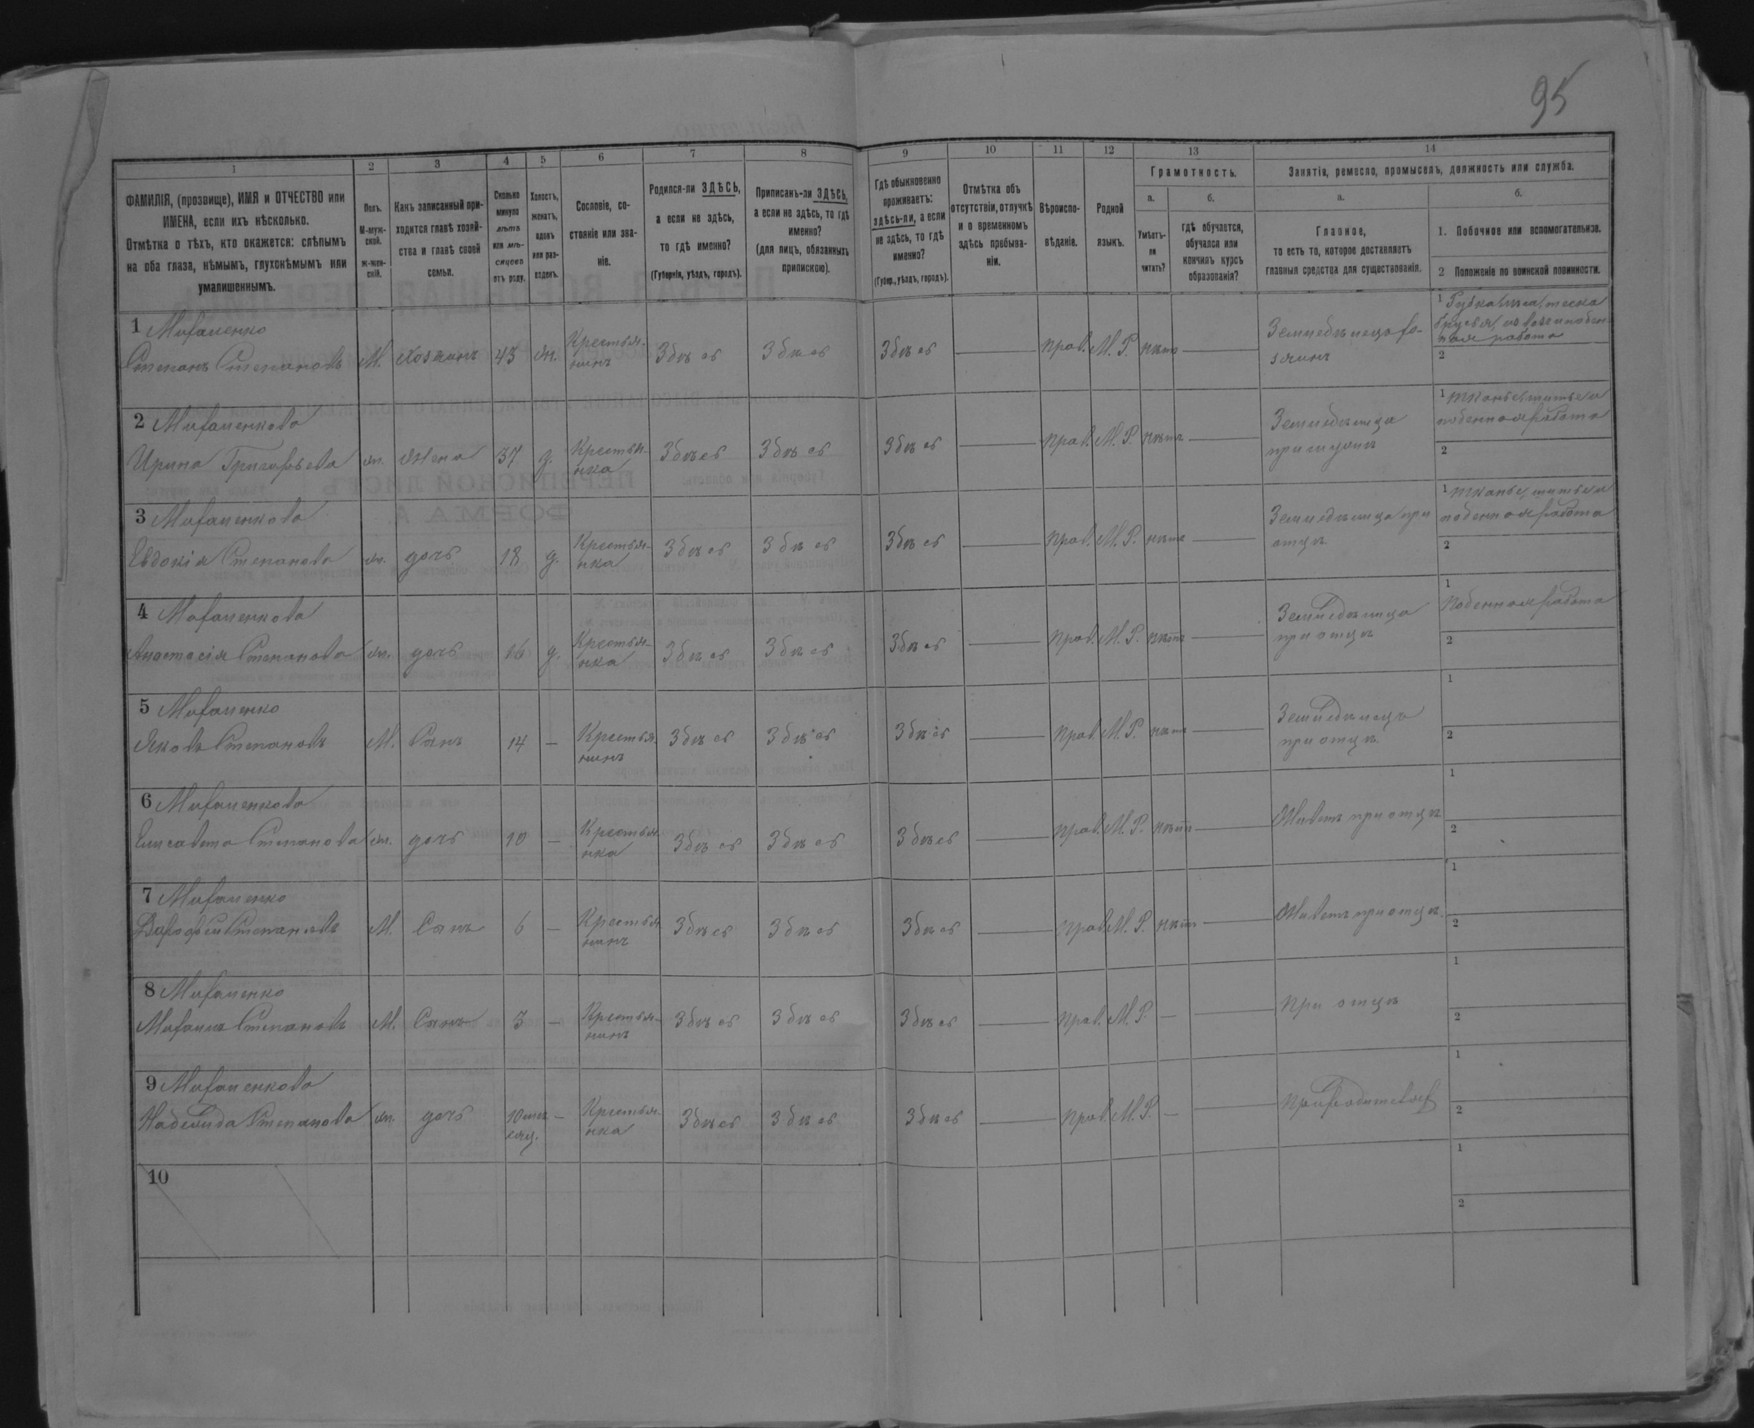 95
1
2
3
4
5
6
7
8
9
10
11
12
13
14
ФАМИЛІЯ, (прозвище), ИМЯ и ОТЧЕСТВО или
ИМЕНА, если ихъ нѣсколько.
Отмѣтка о тѣхъ, кто окажется: слѣпымъ
на оба глаза, нѣмымъ, глухонѣмымъ или
умалишеннымъ.
Полъ.
М-муж-
ской.
ж-жен-
скій.
Какъ записанный при-
ходится главѣ хозяй-
ства и главѣ своей
семьи.
Сколько
минуло
лѣтъ
или мѣ-
сяцевъ
отъ роду.
Холостъ,
женатъ,
вдовъ
или раз-
веденъ.
Сословіе, со-
стояніе или зва-
ніе.
Родился-ли ЗДѢСЬ,
а если не здѣсь,
то гдѣ именно?
(Губернія, уѣздъ, городъ).
Приписанъ-ли ЗДѢСЬ,
а если не здѣсь, то гдѣ
именно?
(для лицъ, обязанныхъ
припискою).
Гдѣ обыкновенно
проживаетъ:
здѣсь-ли, а если
не здѣсь, то гдѣ
именно?
(Губер., уѣздъ, городъ).
Отмѣтка объ
отсутствіи, отлучкѣ
и о временномъ
здѣсь пребыва-
ніи.
Вѣроиспо-
вѣданіе.
Родной
языкъ.
Грамотность.
а.
Умѣетъ-
ли
читать?
б.
гдѣ обучается,
обучался или
кончилъ курсъ
образованія?
Занятіе, ремесло, промыселъ, должность или служба.
а.
Главное,
то есть то, которое доставляетъ
главныя средства для существованія.
б.
1. Побочное или вспомогательное.
2 Положеніе по воинской повинности.
1
Степанъ Степановъ М. Хозяинъ 43 ж. Крестья-
нинъ Здѣсь Здѣсь Здѣсь прав. М. Р. нѣтъ Земледѣлецъ хо-
зяинъ
1
работа
2
2
Ирина Григорьева ж. жена 37 Крестья-
нка Здѣсь Здѣсь Здѣсь прав. М. Р. нѣтъ Земледѣлица
при мужѣ
1 тканье, шитье и
поденная работа
2
3
Евдокія Степанова ж. дочь 18 д. Крестья-
нка Здѣсь Здѣсь Здѣсь прав. М. Р. нѣтъ Земледѣлица при
отцѣ
1 тканье, шитье и
поденная работа
2
4
Анастасія Степанова ж. дочь 16 д. Крестья-
нка Здѣсь Здѣсь Здѣсь прав. М. Р. нѣтъ Земледѣлица
при отцѣ
1
Поденная работа
2
5
Яковъ Степановъ М. Сынъ 14 — Крестья-
нинъ Здѣсь Здѣсь Здѣсь прав. М. Р. нѣтъ Земледѣлецъ
при отцѣ
1
2
6
Елисавета Степанова ж. дочь 10 — Крестья-
нка Здѣсь Здѣсь Здѣсь прав. М. Р. нѣтъ Живетъ при отцѣ
1
2
7
Дорофей Степановъ М. Сынъ 6 — Крестья-
нинъ Здѣсь Здѣсь Здѣсь прав. М. Р. нѣтъ Живетъ при отцѣ
1
2
8
Степановъ М. Сынъ 3 — Крестья-
нинъ Здѣсь Здѣсь Здѣсь прав. М. Р. — При отцѣ
1
2
9
Степанова ж. дочь 10 Крестья-
нка Здѣсь Здѣсь Здѣсь прав. М. Р. —
1
2
10
1
2